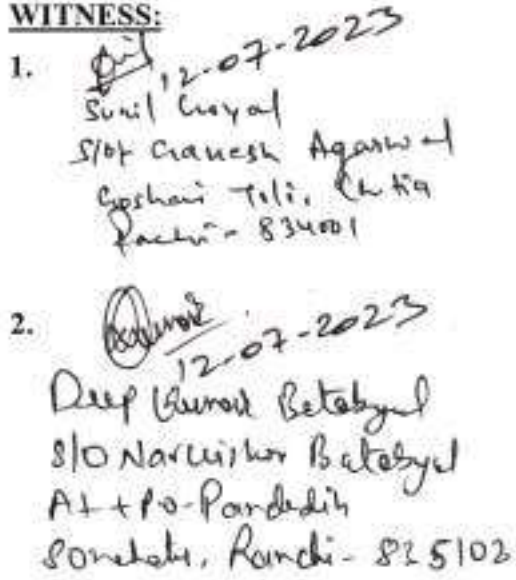 WITNESS:
1. 12-07-2023
Sunil Goyal
S/o Ganesh Agarwal
Goshai Toli, Chutia
Ranchi - 834001
2. Kumar 12-07-2023
Deep Kumar Batabyal
S/O Batabyal
At + Po - Pandadih
Sonahatu, Ranchi - 835102